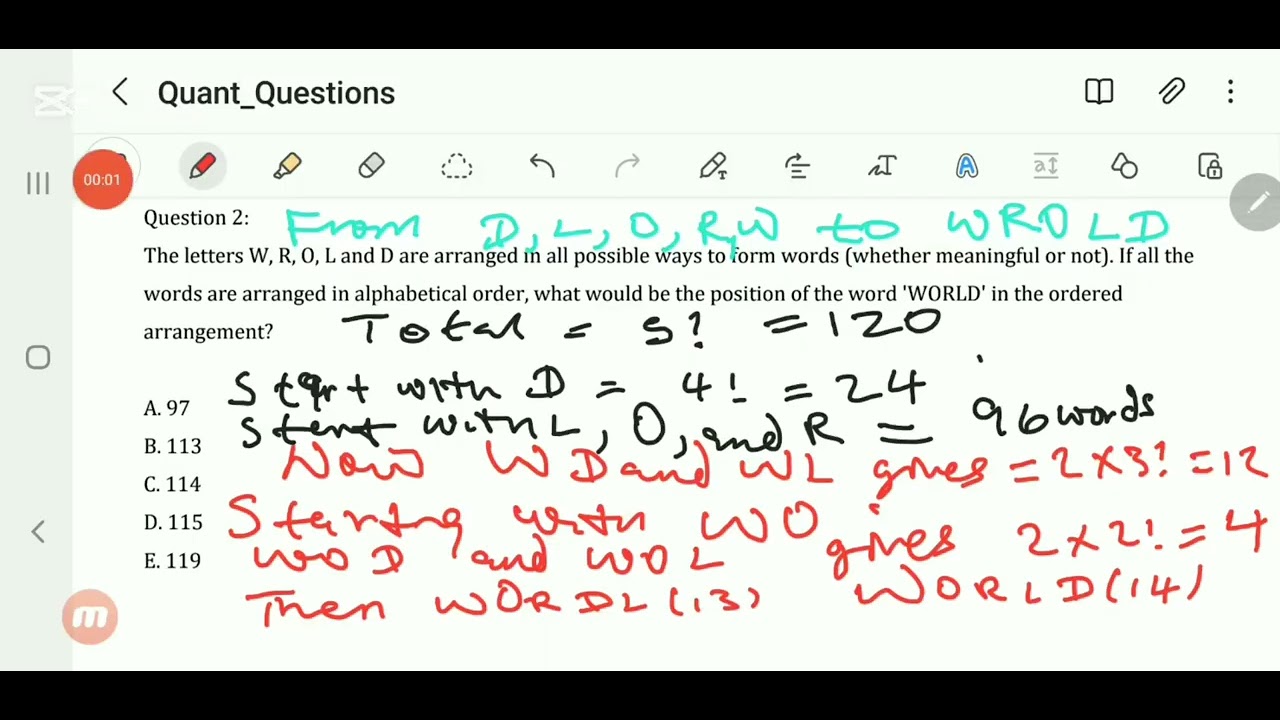 Quant_Questions
00:01
Question 2: From D, L, O, R, W to WROLD
The letters W, R, O, L and D are arranged in all possible ways to form words (whether meaningful or not). If all the
words are arranged in alphabetical order, what would be the position of the word 'WORLD' in the ordered
arrangement? Total = 5! = 120
Start with D = 4! = 24
A. 97
Start with L, O, and R = 96 words
B. 113
Now WD and WL gives = 2 × 3! = 12
C. 114
Starting with WO
D. 115
WOD and WOL gives 2 × 2! = 4
E. 119
Then WORDL (13) WORLD (14)